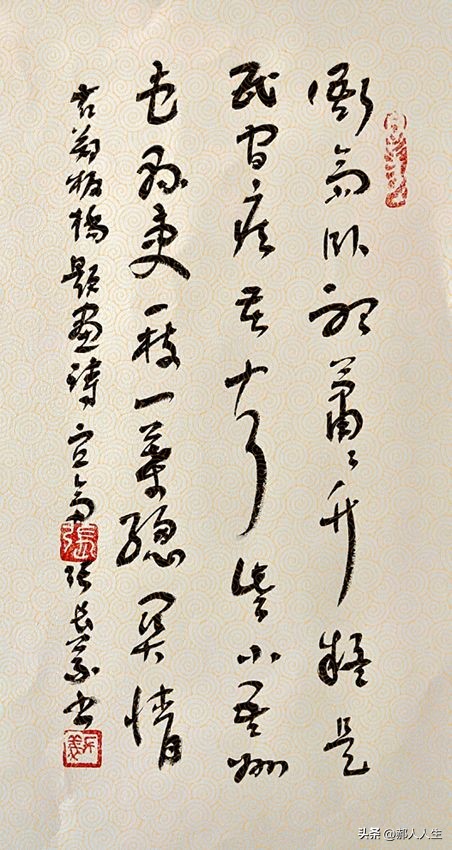 衙斋卧听萧萧竹疑是
民间疾苦声些小吾州
县吏一枝一叶总关情
郑板桥題畫诗 张长书
張
头条 @郝人人生